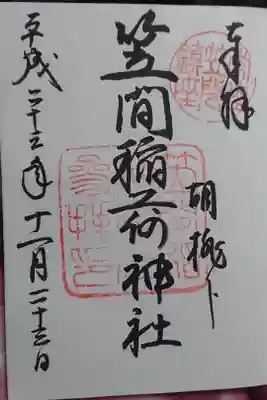 奉拝
胡桃下
笠間稲荷神社
平成二十三年十一月二十三日